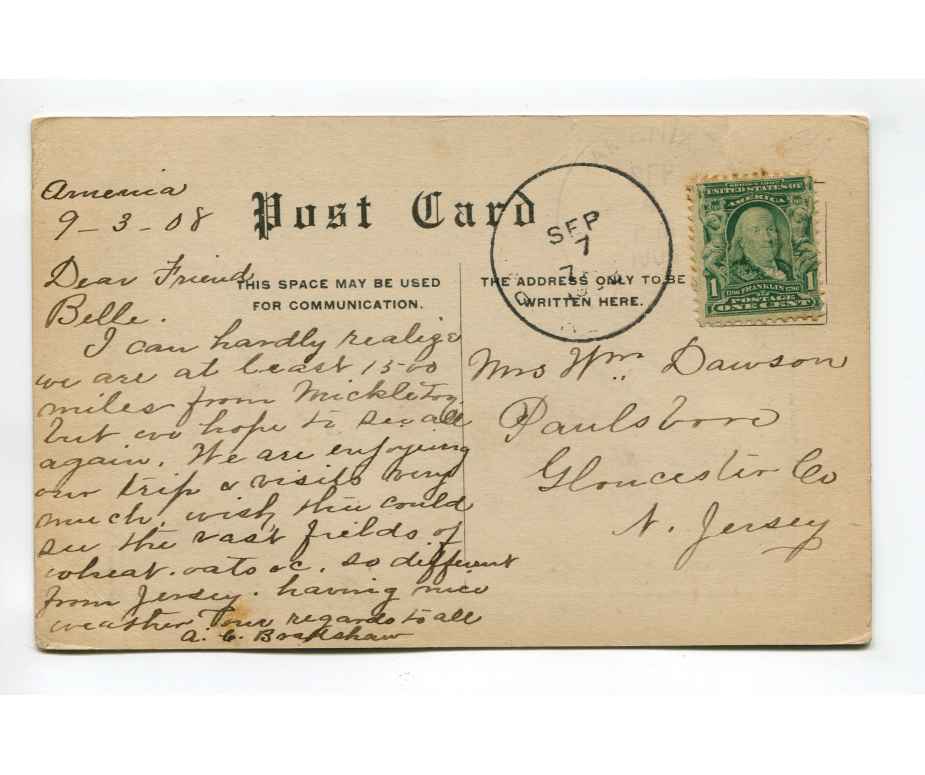 Amenia
9-3-08
Post Card
Dear Friend
Belle.
THIS SPACE MAY BE USED
FOR COMMUNICATION.
I can hardly realize
we are at least 1500
miles from Mickleton,
but we hope to see all
again. We are enjoying
our trip & visits very
much, wish thee could
see the vast fields of
wheat. oats &c. so different
from Jersey. having nice
weather Our regards to all
A. C. Bradshaw
SEP
7
THE ADDRESS ONLY TO BE
WRITTEN HERE.
UNITED STATES OF
AMERICA
1 FRANKLIN 1
POSTAGE
ONE CENT
Mrs Wm. Dawson
Paulsboro
Gloucester Co
N. Jersey